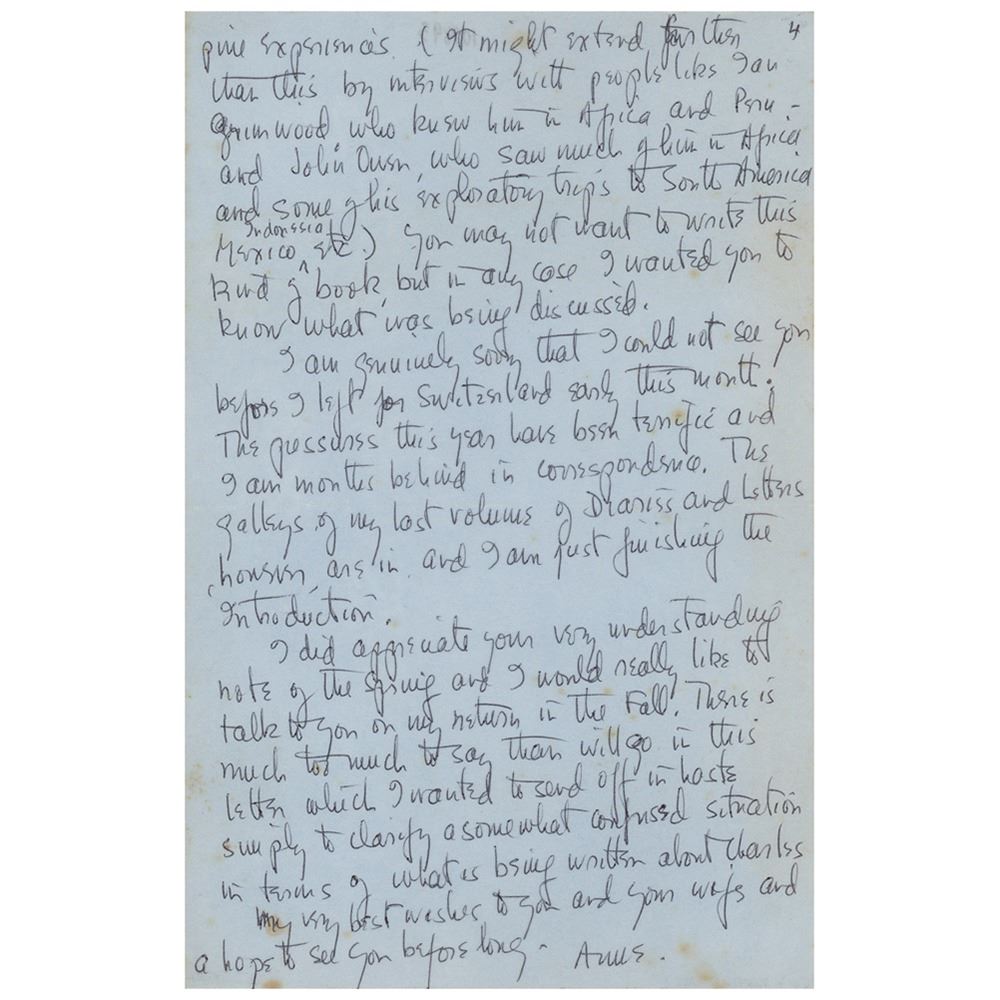 pine experiences. (It might extend further 4
than this by interviews with people like Ian
Grimwood who knew him in Africa and Peru -
and John Owen, who saw much of him in Africa
and some of his exploratory trips to South America
Indonesia
Mexico, ^ etc.) You may not want to write this
kind of book, but in any case I wanted you to
know what was being discussed.
I am genuinely sorry that I could not see you
before I left for Switzerland early this month.
The pressures this year have been terrific and
I am months behind in correspondence. The
galleys of my last volume of Diaries and Letters
, however, are in and I am just finishing the
Introduction.
I did appreciate your very understanding
note of the Spring and I would really like to
talk to you on my return in the Fall. There is
much too much to say than will go in this
letter which I wanted to send off in haste
simply to clarify a somewhat confused situation
in terms of what is being written about Charles
My very best wishes to you and your wife and
a hope to see you before long - Anne.